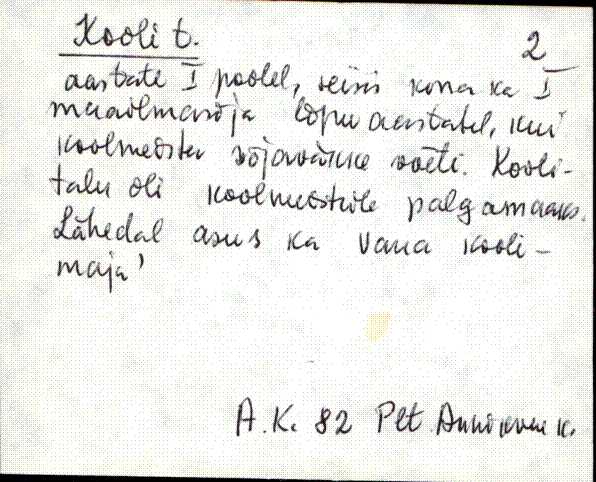 Kooli t.
2
aastate I poolel, seisis korra ka I
maailmasõja lõpu aastatel, kui
koolmeister sõjaväkke võeti. Kooli-
talu oli koolmeistrile palgamaaks.
Lähedal asus ka vana kooli-
maja'
A.K. 82 Plt k.